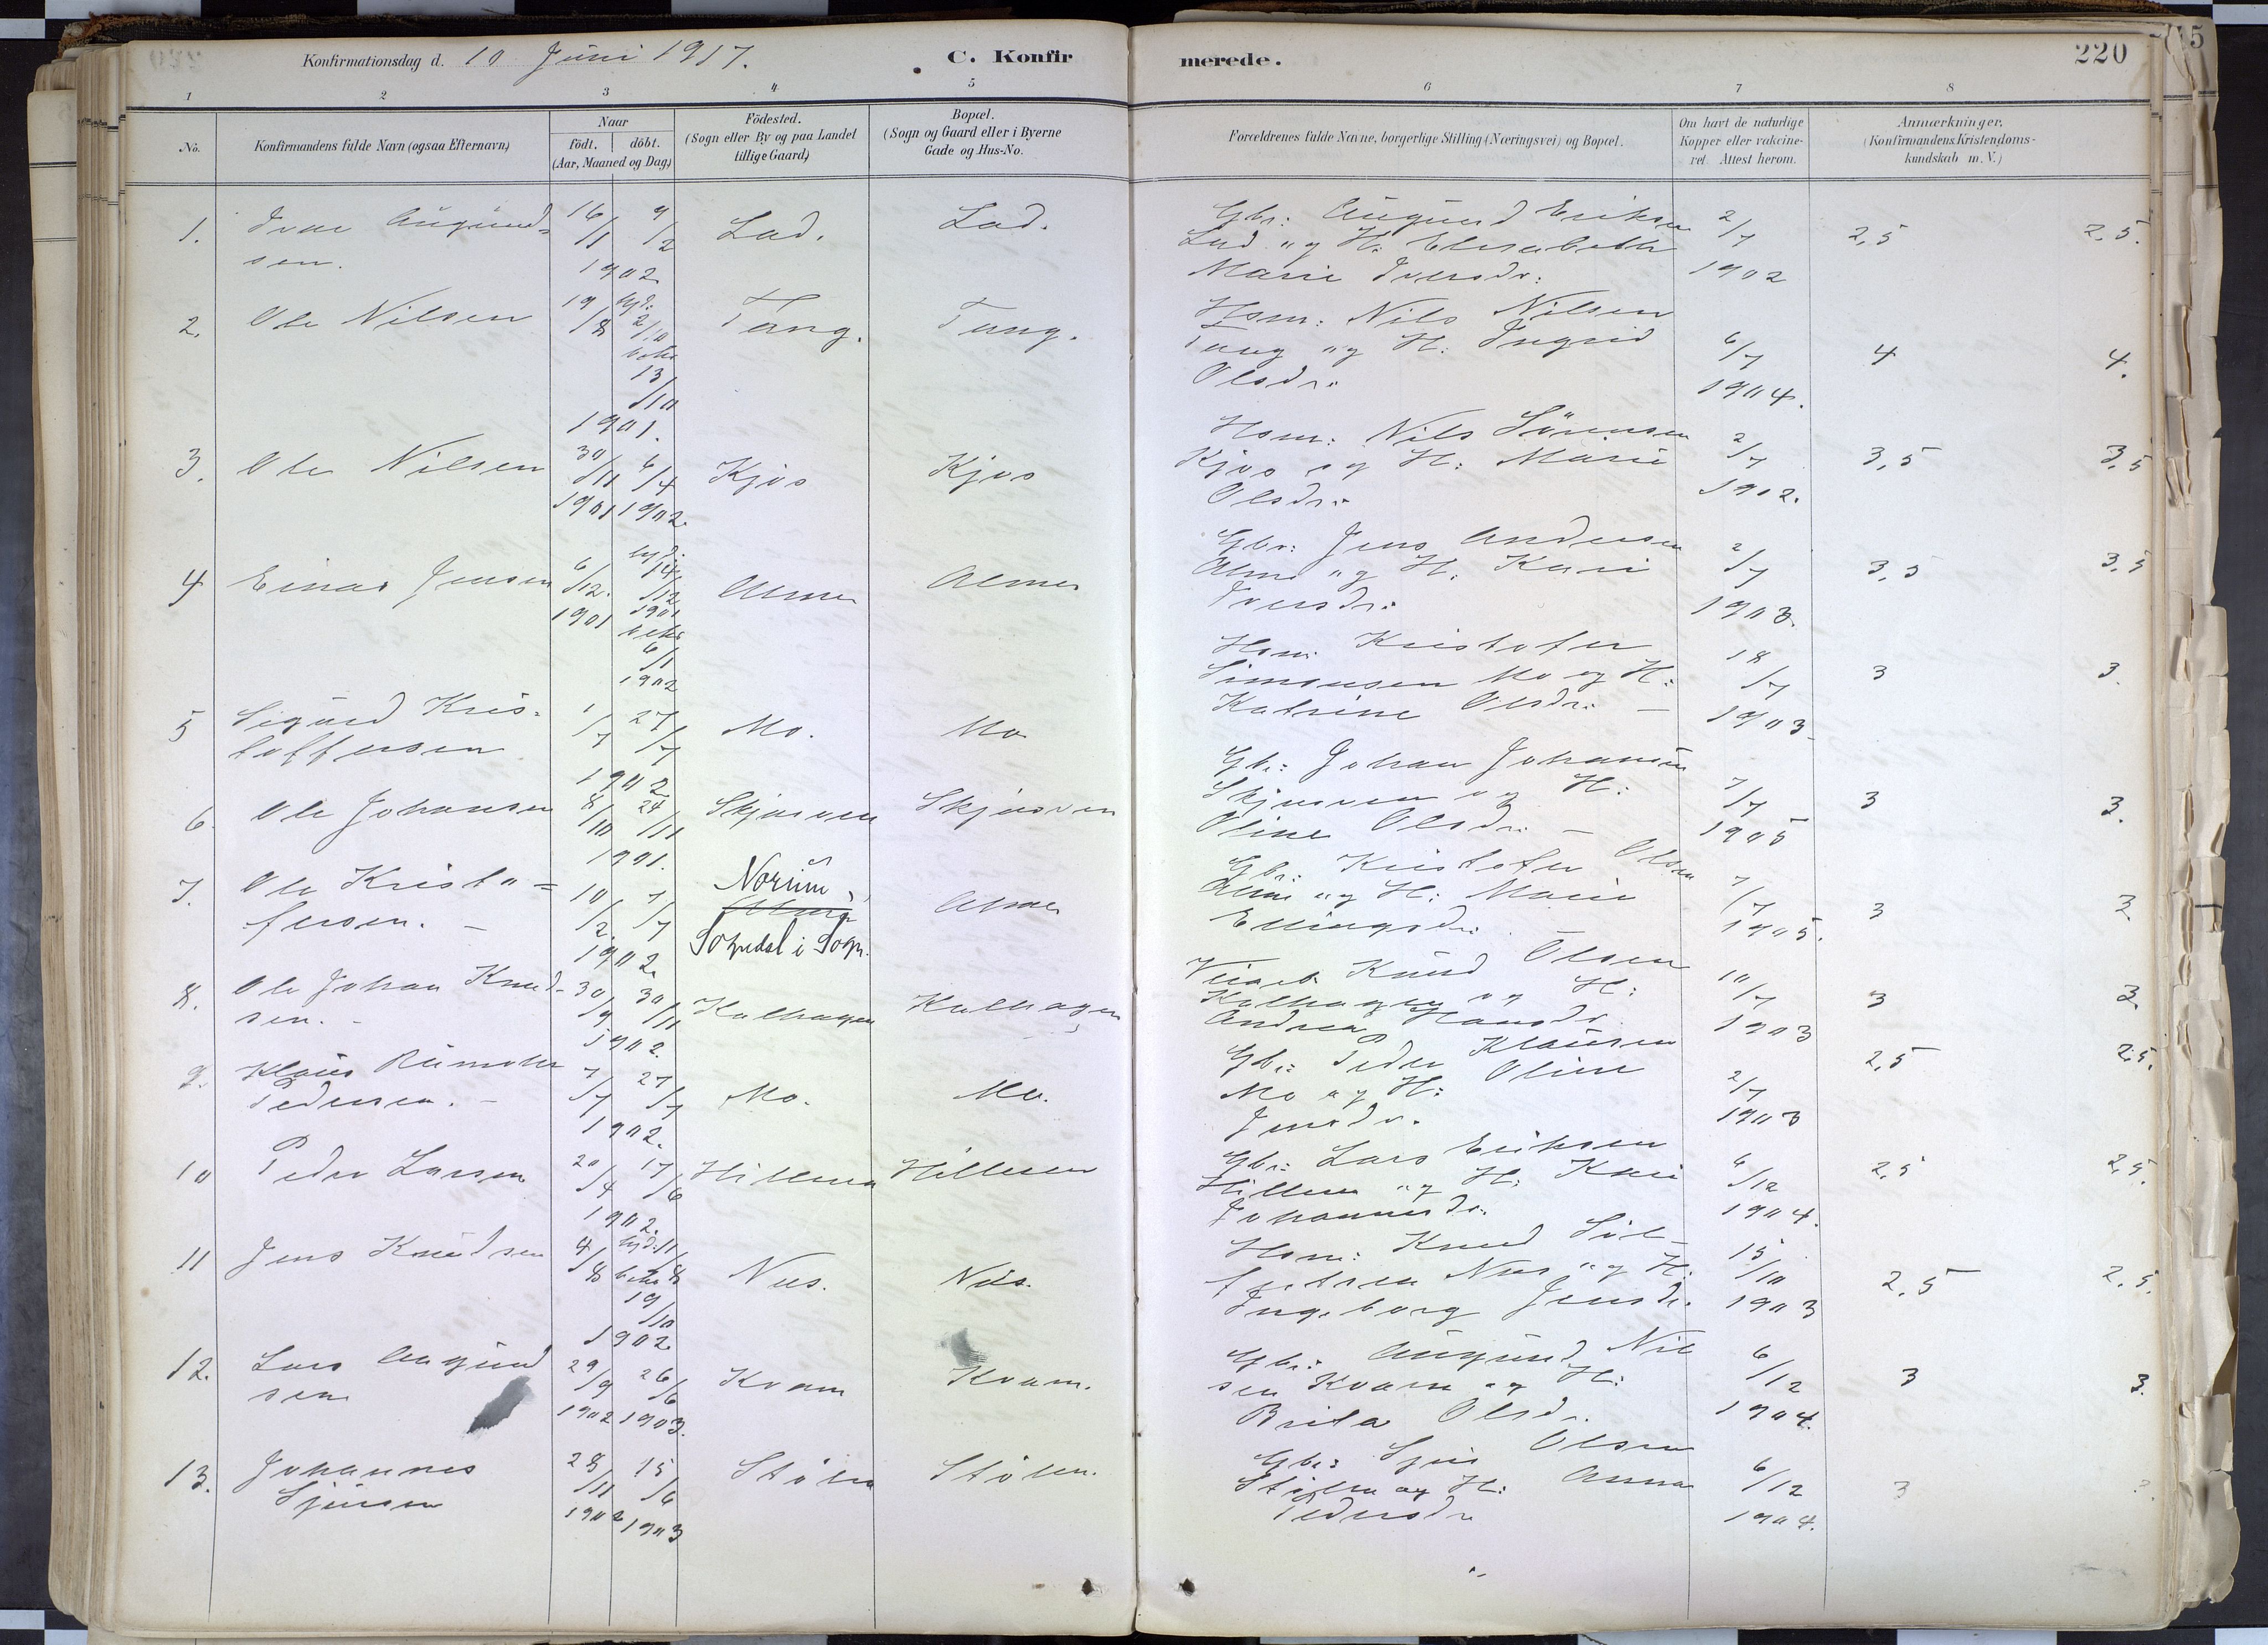 Konfirmationsdag d. 10 Juni 1917.
C. Konfirmerede.
220
1 2 3 4 5 6 7 8
No.
Konfirmandens fulde Navn (ogsaa Efternavn)
Naar
födt. döbt.
(Aar, Maaned og Dag)
Födested.
(Sogn eller By og paa Landet
tillige Gaard)
Bopæl.
(Sogn og Gaard eller i Byerne
Gade og Hus-No.
Forældrenes fulde Navne, borgerlige Stilling (Næringsvei) og Bopæl.
Om havt de naturlige
Kopper eller vakcine-
ret. Attest herom.
Anmærkninger.
(Konfirmandens Kristendoms-
kundskab m. V.)
1. Ivar Augund-
sen.
16/1 9/2
1902
Lad. Lad.
Gbr: Augund Eriksen
Lad og H: Elisabeth
Marie Iversdr:
2/7
1902
2,5 2,5.
2. Ole Nilsen
19/8 hjd: 2/10
bekr
13/10
1901.
Tang. Tang.
Hsm: Nils Nilsen
Tang og H: Ingrid
Olsdr:
6/7
1904.
4 4.
3. Ole Nilsen
30/11 6/4
1901 1902.
Kjøs Kjøs
Hsm: Nils Sörensen
Kjøs og H: Marie
Olsdr:
2/7
1902.
3,5 3,5
4 Einar Jensen
6/12. hjd. 14/12
1901 1901
bekr
6/1
1902
Alme Alme
Gbr: Jens Andersen
Alme og H: Kari
Iversdr:
2/7
1903.
3,5 3,5
5 Sigurd Kris-
toffersen
1/7 27/7
1902
Mo. Mo
Hsm: Kristofer
Simonsen Mo og H:
Katrine Olsdr: –
18/7
1903
3 3.
6. Ole Johansen
8/10 24/11
1901.
Skjersven Skjersven
Gbr: Johan Johansen
Skjersven og H:
Oline Olsdr. –
7/7
1905
3 3.
7. Ole Kristo=
fersen. –
10/2. 7/7
1902.
Norum,
Alme
Sogndal i Sogn.
Alme
Gbr: Kristofer Olsen
Alme og H: Marie
Ellingsdr:
7/7
1905.
3 3.
8. Ole Johan Knud-
sen. –
30/9 30/11
1902.
Kalhagen Kalhagen
Knud Olsen
Kalhagen og H:
Andrea Hansdr.
10/7
1903
3 3.
9. Klaus Rumohr
Pedersen. –
7/7 27/7
1902.
Mo. Mo.
Gbr: Peder Klausen
Mo og H: Oline
Jensdr.
2/7
1903
2,5 2,5.
10 Peder Larsen
20/4 17/6
1902.
Hillern Hillern
Gbr: Lars Eriksen
Hillern og H: Kari
Johannesdr.
6/12
1904.
2,5 2,5.
11 Jens Knudsen
4/8 hjd: 11/8
bekr
19/10
1902.
Nes. Nes.
Hsm: Knud Sjul-
Nes og H:
Ingeborg Jensdr.
15/10
1903
2,5 2,5.
12. Lars Augund
sen
29/9 26/6
1902 1903.
Kvam Kvam.
Gbr: Augund Nil
sen Kvam og H:
Brita Olsdr.
6/12
1904.
3 3.
13. Johannes
Sjursen
28/11 15/6
1902 1903
Stölen Stölen.
Gbr: Sjur Olsen
Stölen og H: Anna
Pedersdr
6/12
1904.
3